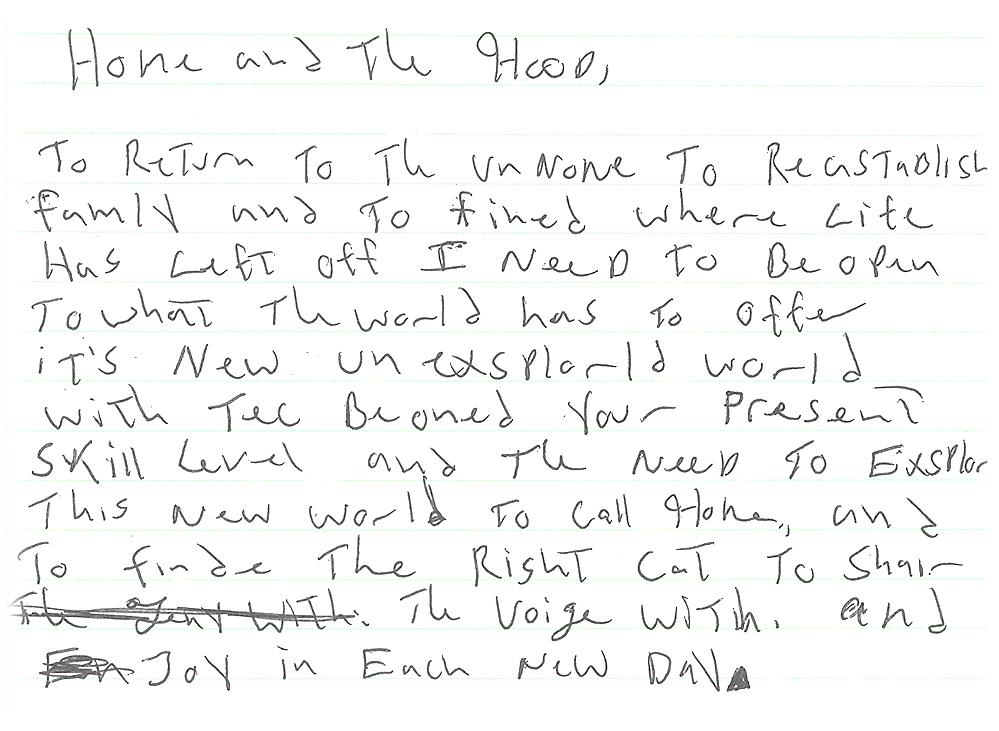 Home and The Hood,
To ReTurn To The unNone To ReasTablish
family and To fined where Life
Has Left off I Need To Be open
To what The world has To offer
iT's New unexsplorld world
with Tec Beoned your Present
Skill Level and The Need To Exsplor
This New world To call Home, and
To finde The Right CaT To Shair
The Jeny WiTh. The Voige WiTh. and
Enjoy in Each New Day.